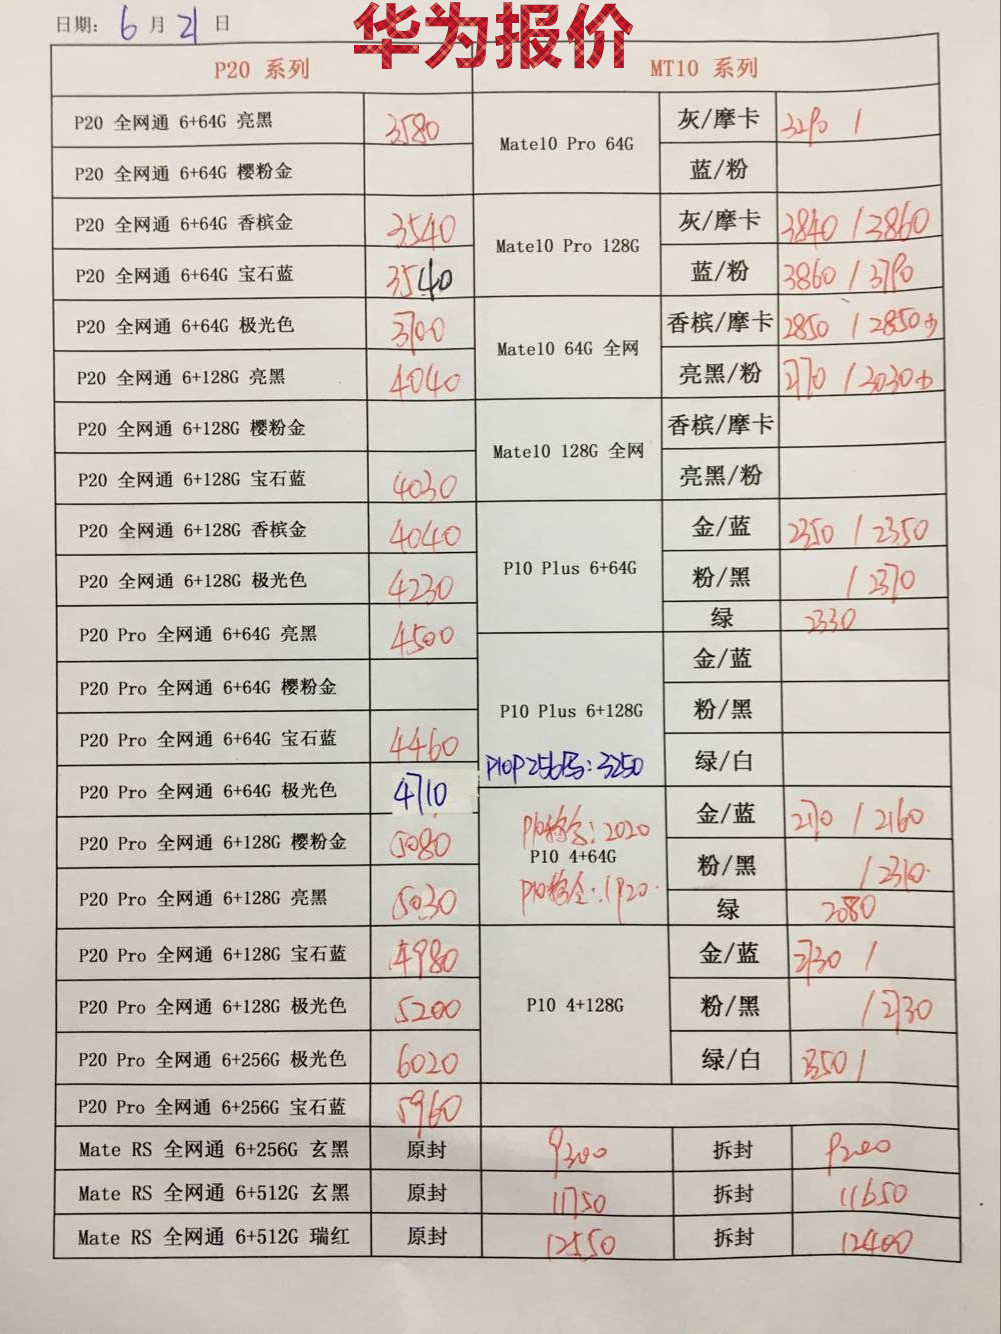 华为报价
日期: 6 月 21 日
P20 系列 MT10 系列
P20 全网通 6+64G 亮黑 3580
P20 全网通 6+64G 樱粉金
P20 全网通 6+64G 香槟金 3540
P20 全网通 6+64G 宝石蓝 3540
P20 全网通 6+64G 极光色 3700
P20 全网通 6+128G 亮黑 4040
P20 全网通 6+128G 樱粉金
P20 全网通 6+128G 宝石蓝 4030
P20 全网通 6+128G 香槟金 4040
P20 全网通 6+128G 极光色 4230
P20 Pro 全网通 6+64G 亮黑 4500
P20 Pro 全网通 6+64G 樱粉金
P20 Pro 全网通 6+64G 宝石蓝 4460
P20 Pro 全网通 6+64G 极光色 4710
P20 Pro 全网通 6+128G 樱粉金 5080
P20 Pro 全网通 6+128G 亮黑 5030
P20 Pro 全网通 6+128G 宝石蓝 4980
P20 Pro 全网通 6+128G 极光色 5200
P20 Pro 全网通 6+256G 极光色 6020
P20 Pro 全网通 6+256G 宝石蓝 5960
Mate10 Pro 64G
灰/摩卡 3290 /
蓝/粉
Mate10 Pro 128G
灰/摩卡 3840 / 3860
蓝/粉 3860 / 3790
Mate10 64G 全网
香槟/摩卡 2850 / 2850
亮黑/粉 / 3030
Mate10 128G 全网
香槟/摩卡
亮黑/粉
P10 Plus 6+64G
金/蓝 2350 / 2350
粉/黑 / 2370
绿 2330
P10 Plus 6+128G
P10P256G:3250
金/蓝
粉/黑
绿/白
P10 :2020
P10 4+64G
P10 :1920
金/蓝 2170 / 2160
粉/黑 / 2310
绿 2080
P10 4+128G
金/蓝 2730 /
粉/黑 / 2730
绿/白 /
Mate RS 全网通 6+256G 玄黑 原封 9300 拆封 9200
Mate RS 全网通 6+512G 玄黑 原封 11750 拆封 11650
Mate RS 全网通 6+512G 瑞红 原封 12550 拆封 12400